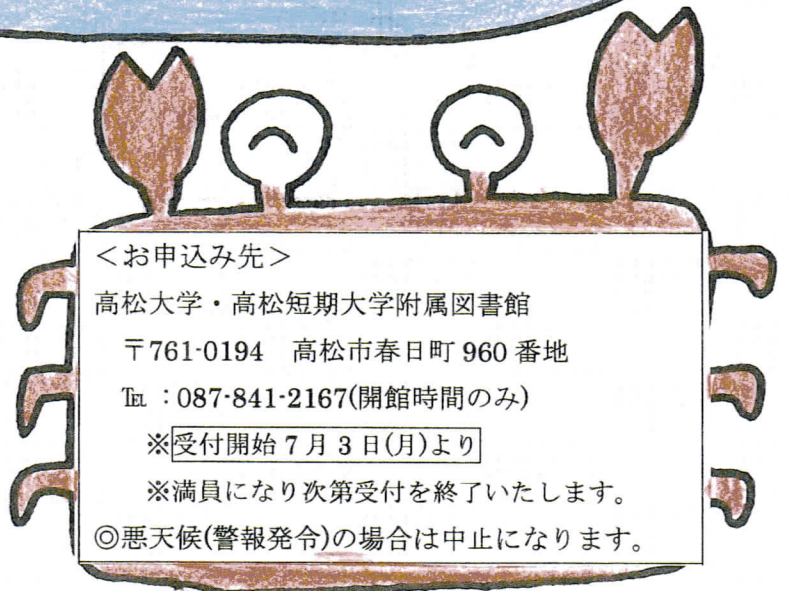 ＜お申込み先＞
高松大学・高松短期大学附属図書館
〒761-0194　高松市春日町 960 番地
℡ ：087-841-2167(開館時間のみ)
※受付開始 7 月 3 日(月)より
※満員になり次第受付を終了いたします。
◎悪天候(警報発令)の場合は中止になります。